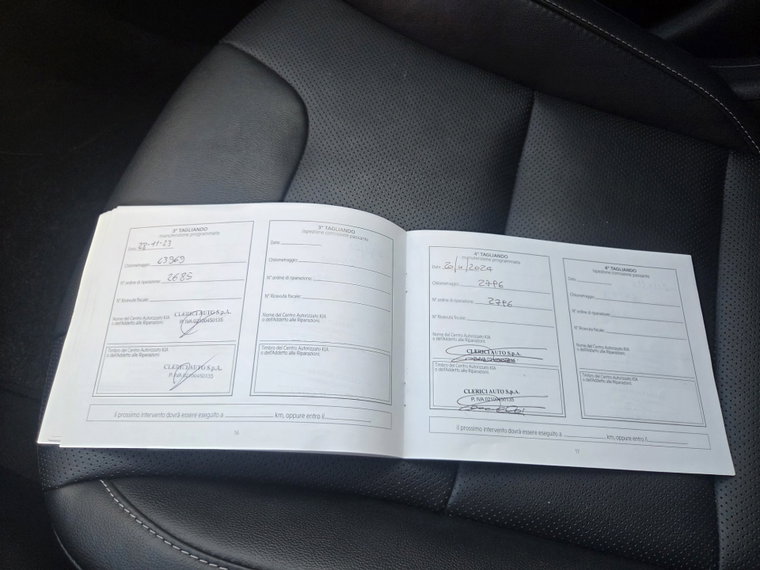 3° TAGLIANDO
manutenzione programmata
Data: 28-11-23
Chilometraggio: 63969
N° ordine di riparazione: 2685
N° Ricevuta fiscale:
Nome del Centro Autorizzato KIA
o dell'Addetto alle Riparazioni:
CLERICI AUTO S.p.A.
P. IVA 02500450135
Timbro del Centro Autorizzato KIA
o dell'Addetto alle Riparazioni:
CLERICI AUTO S.p.A.
P. IVA 02500450135
3° TAGLIANDO
ispezione corrosione passante
Data:
Chilometraggio:
N° ordine di riparazione:
N° Ricevuta fiscale:
Nome del Centro Autorizzato KIA
o dell'Addetto alle Riparazioni:
Timbro del Centro Autorizzato KIA
o dell'Addetto alle Riparazioni:
Il prossimo intervento dovrà essere eseguito a km, oppure entro il
16
4° TAGLIANDO
manutenzione programmata
Data: 20/11/2024
Chilometraggio: 2796
N° ordine di riparazione: 2796
N° Ricevuta fiscale:
Nome del Centro Autorizzato KIA
o dell'Addetto alle Riparazioni:
CLERICI AUTO S.p.A.
Timbro del Centro Autorizzato KIA
o dell'Addetto alle Riparazioni:
CLERICI AUTO S.p.A.
P. IVA 02500450135
4° TAGLIANDO
ispezione corrosione passante
Data:
Chilometraggio:
N° ordine di riparazione:
N° Ricevuta fiscale:
Nome del Centro Autorizzato KIA
o dell'Addetto alle Riparazioni:
Timbro del Centro Autorizzato KIA
o dell'Addetto alle Riparazioni:
Il prossimo intervento dovrà essere eseguito a km, oppure entro il
17